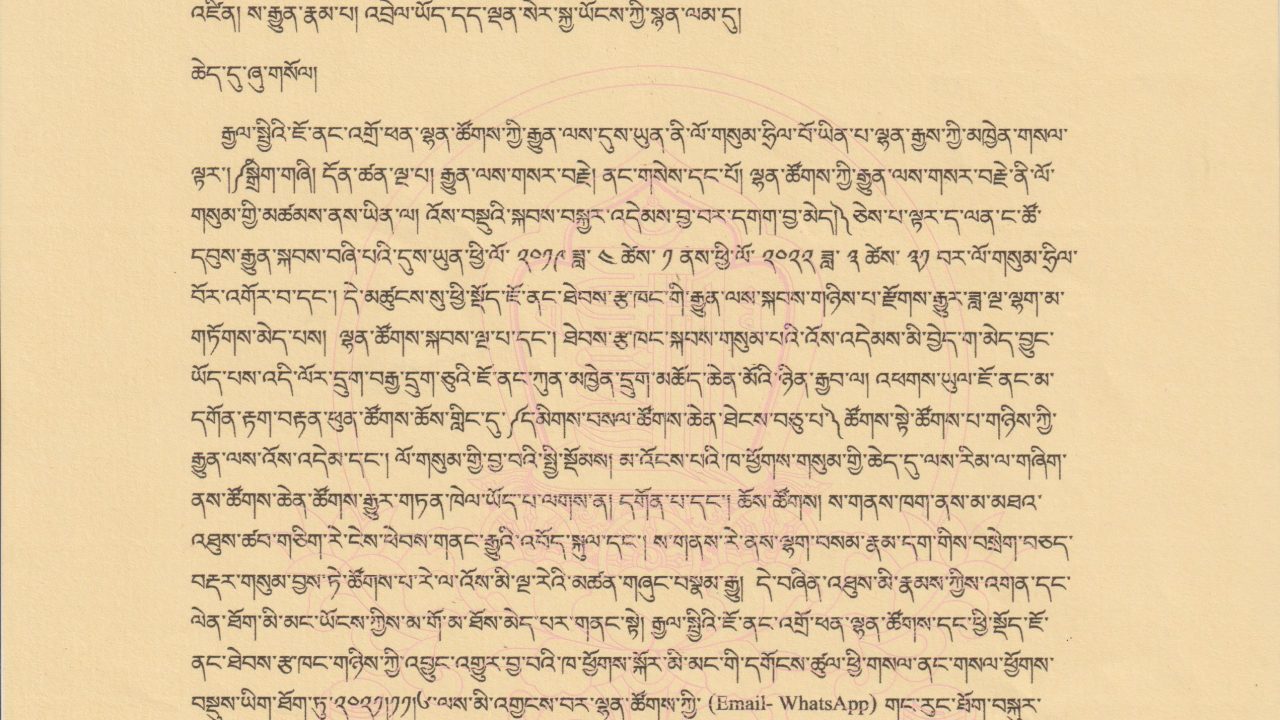 འཛིན། ས་རྒྱུན་རྣམ་པ། འབྲེལ་ཡོད་དད་ལྡན་སེར་སྐྱ་ཡོངས་ཀྱི་སྙན་ལམ་དུ།
ཆེད་དུ་ཞུ་གསོལ།
རྒྱལ་སྤྱིའི་ཇོ་ནང་འགྲོ་ཕན་ལྷན་ཚོགས་ཀྱི་རྒྱུན་ལས་དུས་ཡུན་ནི་ལོ་གསུམ་ཧྲིལ་པོ་ཡིན་པ་ལྷན་རྒྱས་ཀྱི་མཁྱེན་གསལ་
ལྟར་།༼སྒྲིག་གཞི། དོན་ཚན་ལྔ་པ། རྒྱུན་ལས་གསར་བརྗེ། ནང་གསེས་དང་པོ། ལྷན་ཚོགས་ཀྱི་རྒྱུན་ལས་གསར་བརྗེ་ནི་ལོ་
གསུམ་གྱི་མཚམས་ནས་ཡིན་ལ། འོས་བསྡུའི་སྐབས་བསྐྱར་འདེམས་བྱ་བར་དགག་བྱ་མེད།༽ཅེས་པ་ལྟར་ད་ལན་ང་ཚོ་
དབུས་རྒྱུན་སྐབས་བཞི་པའི་དུས་ཡུན་ཕྱི་ལོ་ ༢༠༡༩ ཟླ་ ༤ ཚེས་ ༡ ནས་ཕྱི་ལོ་ ༢༠༢༢ ཟླ་ ༣ ཚེས་ ༣༡ བར་ལོ་གསུམ་ཧྲིལ་
པོར་འགོར་བ་དང་། དེ་མཚུངས་སུ་ཕྱི་སྡོད་ཇོ་ནང་ཐེབས་རྩ་ཁང་གི་རྒྱུན་ལས་སྐབས་གཉིས་པ་རྫོགས་རྒྱུར་ཟླ་ལྔ་ལྷག་མ་
གཏོགས་མེད་པས། ལྷན་ཚོགས་སྐབས་ལྔ་པ་དང་། ཐེབས་རྩ་ཁང་སྐབས་གསུམ་པའི་འོས་འདེམས་མི་བྱེད་ག་མེད་བྱུང་
ཡོད་པས་འདི་ལོར་དྲུག་བརྒྱ་དྲུག་ཅུའི་ཇོ་ནང་ཀུན་མཁྱེན་དྲུག་མཆོད་ཆེན་མོའི་ཉིན་རྒྱབ་ལ། འཕགས་ཡུལ་ཇོ་ནང་མ་
དགོན་རྟག་བརྟན་ཕུན་ཚོགས་ཆོས་གླིང་དུ་༼དམིགས་བསལ་ཚོགས་ཆེན་ཐེངས་བཅུ་པ་༽ཚོགས་སྟེ་ཚོགས་པ་གཉིས་ཀྱི་
རྒྱུན་ལས་འོས་འདེམ་དང་། ལོ་གསུམ་གྱི་བྱ་བའི་སྤྱི་སྡོམས། མ་འོངས་པའི་ཁ་ཕྱོགས་གསུམ་གྱི་ཆེད་དུ་ལས་རིམ་ལ་གཞིག་
ནས་ཚོགས་ཆེན་ཚོགས་རྒྱུར་གཏན་ཁེལ་ཡོད་པ་ལགས་ན། དགོན་པ་དང་། ཆོས་ཚོགས། ས་གནས་ཁག་ནས་མ་མཐའ་
འཐུས་ཚབ་གཅིག་རེ་ངེས་ཕེབས་གནང་རྒྱུའི་འབོད་སྐུལ་དང་། ས་གནས་རེ་ནས་ལྷག་བསམ་རྣམ་དག་གིས་བསྲེག་བཅད་
བརྡར་གསུམ་བྱས་ཏེ་ཚོགས་པ་རེ་ལ་འོས་མི་ལྔ་རེའི་མཚན་གཞུང་བསྣམ་རྒྱུ། དེ་བཞིན་འཐུས་མི་རྣམས་ཀྱིས་འགན་དང་
ལེན་ཐོག་མི་མང་ཡོངས་ཀྱིས་མ་གོ་མ་ཐོས་མེད་པར་གནང་སྟེ། རྒྱལ་སྤྱིའི་ཇོ་ནང་འགྲོ་ཕན་ལྷན་ཚོགས་དང་ཕྱི་སྡོད་ཇོ་
ནང་ཐེབས་རྩ་ཁང་གཉིས་ཀྱི་འབྱུང་འགྱུར་བྱ་བའི་ཁ་ཕྱོགས་སྐོར་མི་མང་གི་དགོངས་ཚུལ་ཕྱི་གསལ་ནང་གསལ་ཕྱོགས་
བསྡུས་ཡིག་ཐོག་ཏུ་༢༠༢༡།༡༡།༦་ལས་མི་འགྱངས་བར་ལྷན་ཚོགས་ཀྱི་ (Email- WhatsApp) གང་རུང་ཐོག་བསྐུར་